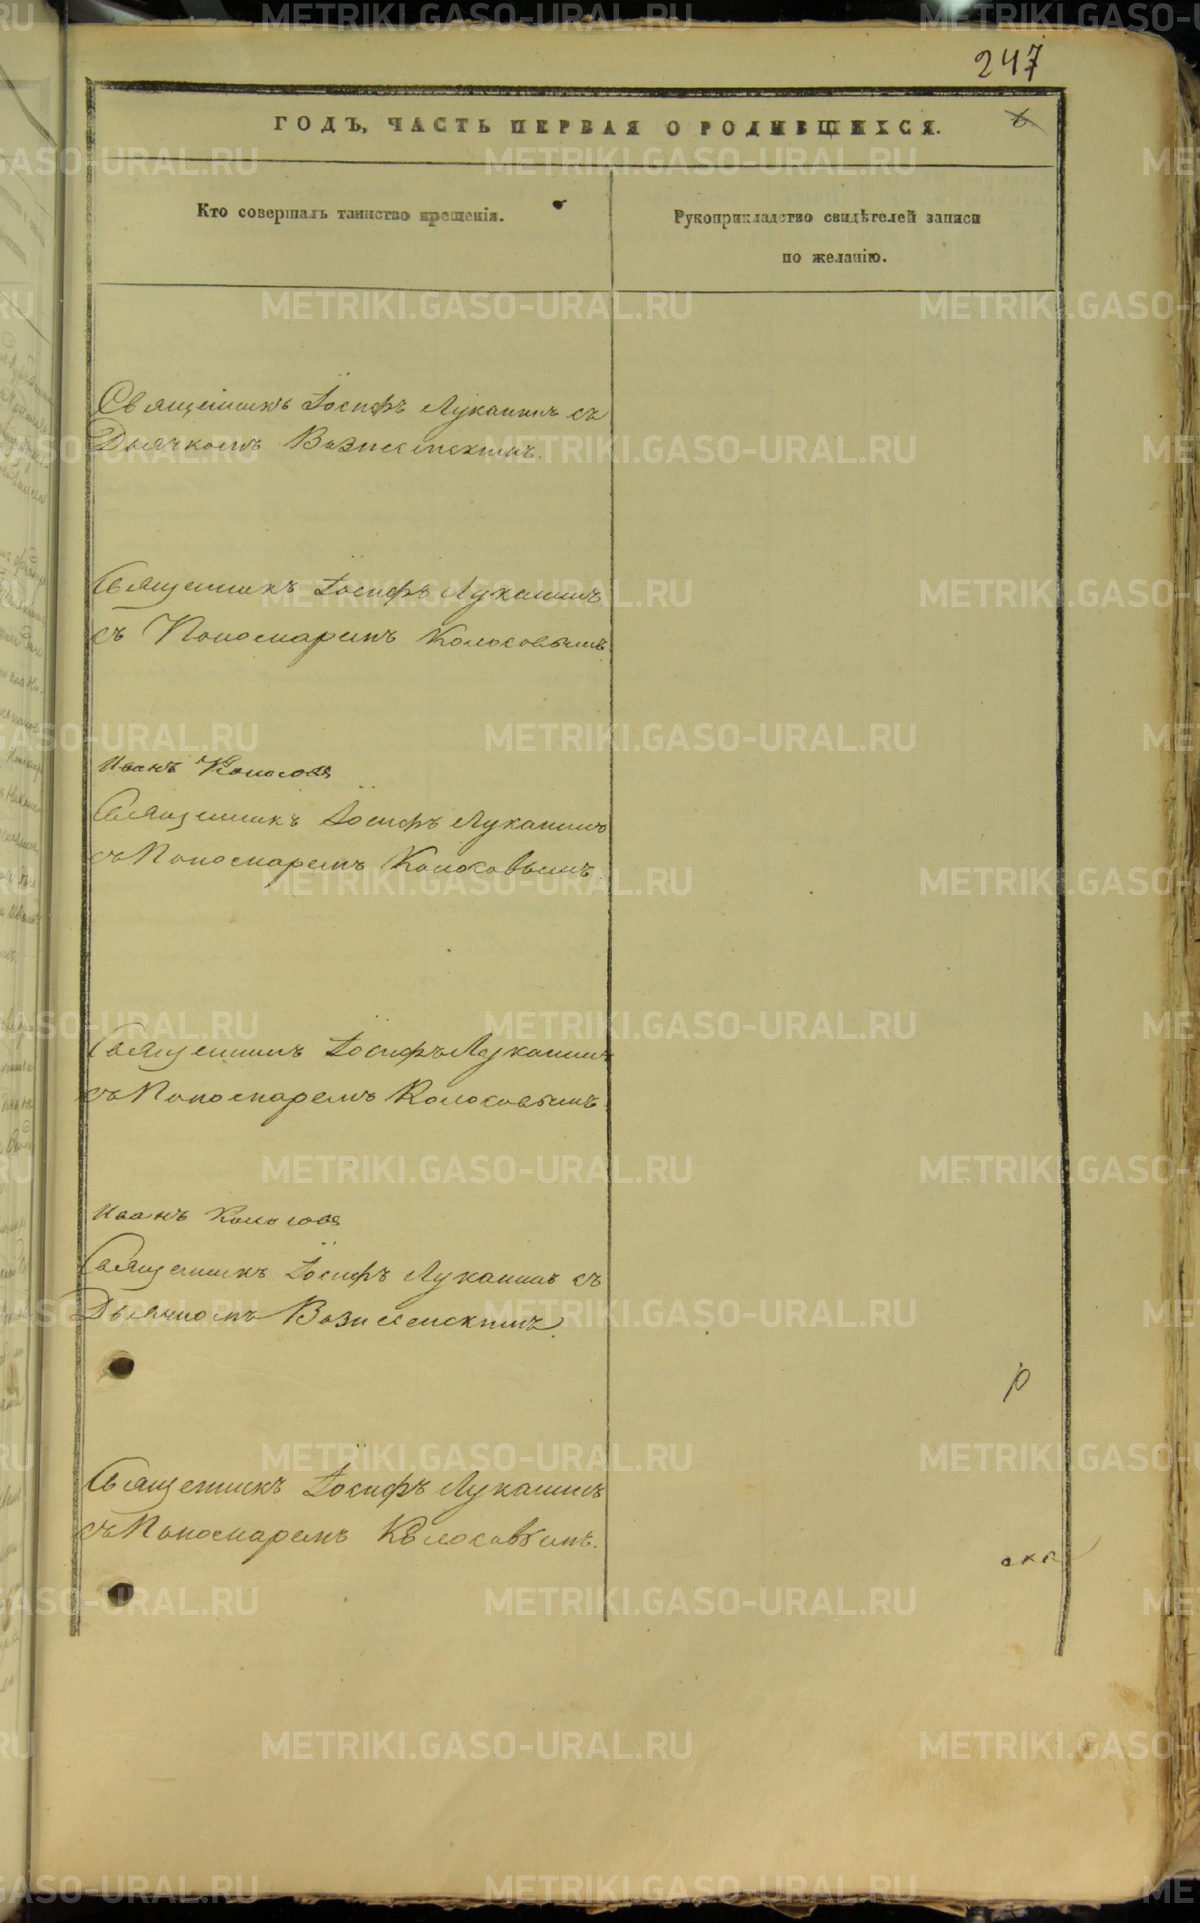 247
ГОДЪ, ЧАСТЬ ПЕРВАЯ О РОДИВШИХСЯ.
Кто совершалъ таинство крещенія.
Рукоприкладство свидѣтелей записи
по желанію.
Священникъ Іосифъ Луканинъ съ
Дьячкомъ Вознесенскимъ.
Священникъ Іосифъ Луканинъ
съ Пономаремъ Колосовымъ
Иванъ Колосовъ
Священникъ Іосифъ Луканинъ
съ Пономаремъ Колосовымъ.
Священникъ Іосифъ Луканинъ
съ Пономаремъ Колосовымъ.
Иванъ Колосовъ
Священникъ Іосифъ Луканинъ съ
Дьячкомъ Вознесенскимъ.
Священникъ Іосифъ Луканинъ
съ Пономаремъ Колосовымъ.
METRIKI.GASO-URAL.RU